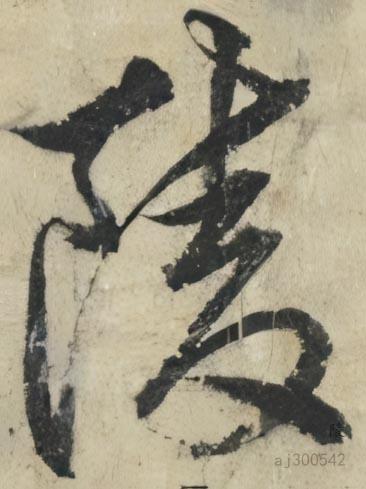 陵
aj300542